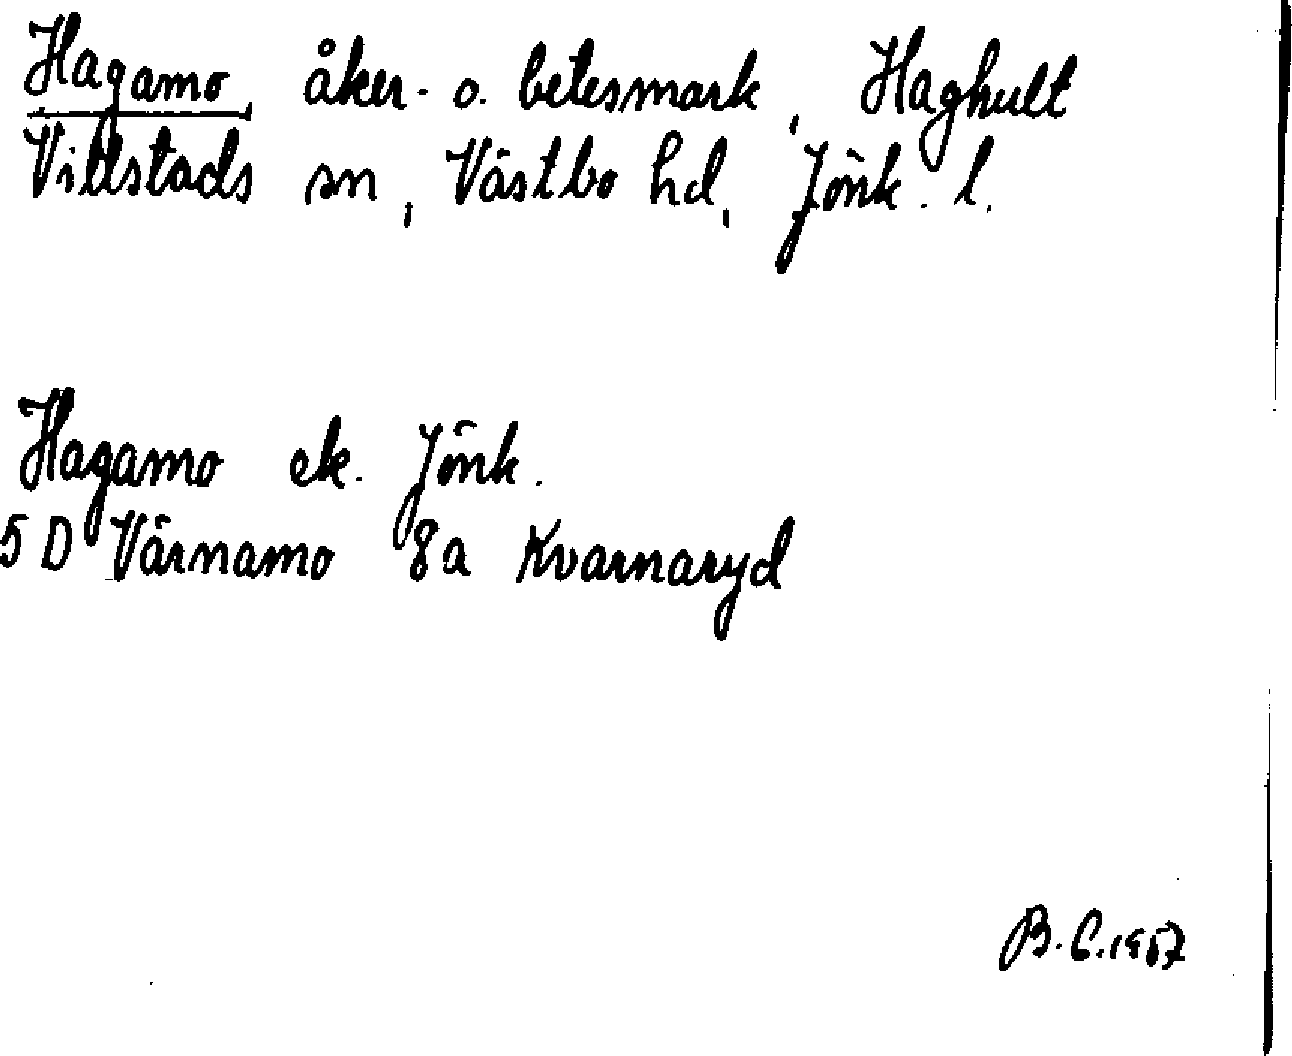 Hagamo, åker- o. betesmark, Haghult
Villstads sn, Västbo hd, Jönk. l.
Hagamo ek. Jönk.
5 D Värnamo 8a Kvarnaryd
B. C. 1957